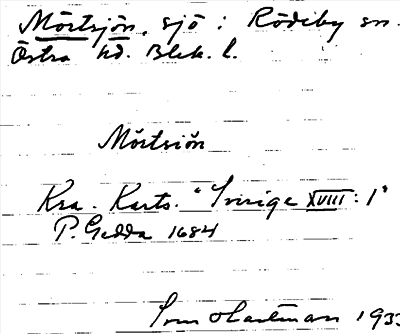 Mörtsjön, sjö : Rödeby sn.
Östra hd. Blek. l.
Mörtsiön
Kra. Karts. "Sverige XVIII : 1"
P. Gedda 1684
1933